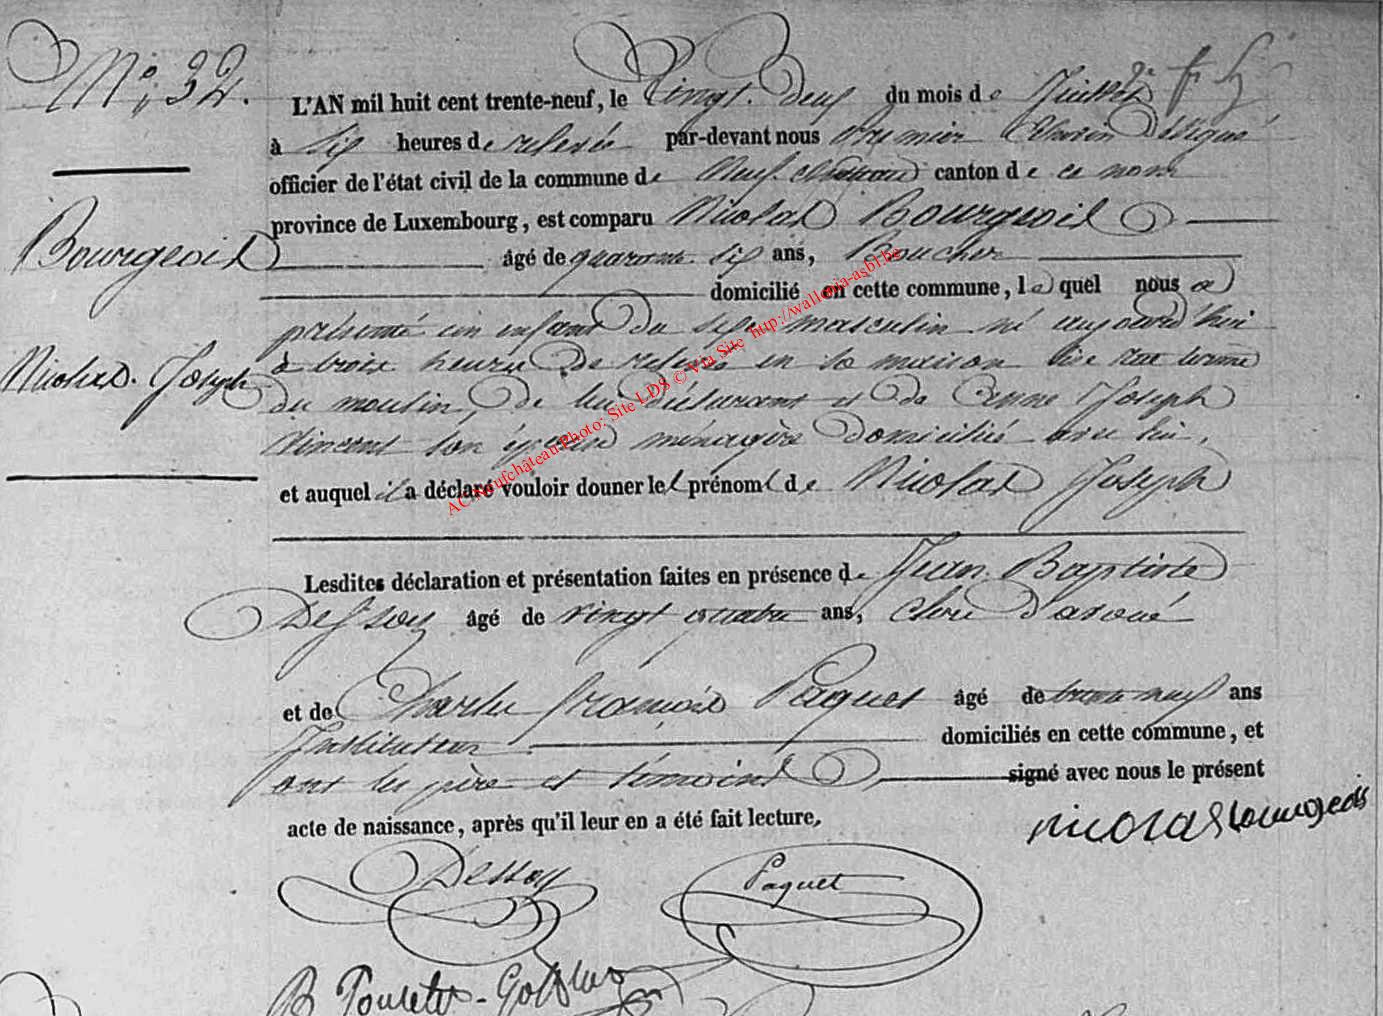 N° 32.
L'AN mil huit cent trente-neuf, le Vingt-Deux du mois de Juillet
à Six heures de relevée par-devant nous Premier Echevin Délégué
officier de l'état civil de la commune de Neufchâteau canton de ce nom
province de Luxembourg, est comparu Nicolas Bourgeois
Bourgeois
âgé de quarante six ans, Boucher
domicilié en cette commune, lequel nous a
présenté un enfant du sexe masculin né aujourd'hui
à trois heures de relevée en sa maison
Nicolas Joseph
du moulin, de lui déclarant et de Anne Joseph
Vincent son épouse ménagère domiciliée avec lui,
et auquel il a déclaré vouloir donner les prénoms de Nicolas Joseph
Lesdites déclaration et présentation faites en présence de Jean Baptiste
Dessoy âgé de vingt quatre ans, clerc d'avoué
et de Charles François Paquet âgé de trente neuf ans
Instituteur domiciliés en cette commune, et
ont les père et témoins signé avec nous le présent
acte de naissance, après qu'il leur en a été fait lecture.
nicolas bourgeois
Dessoy
Paquet
AC Neufchâteau Photo: Site LDS © Via Site http://wallonia-asbl.be